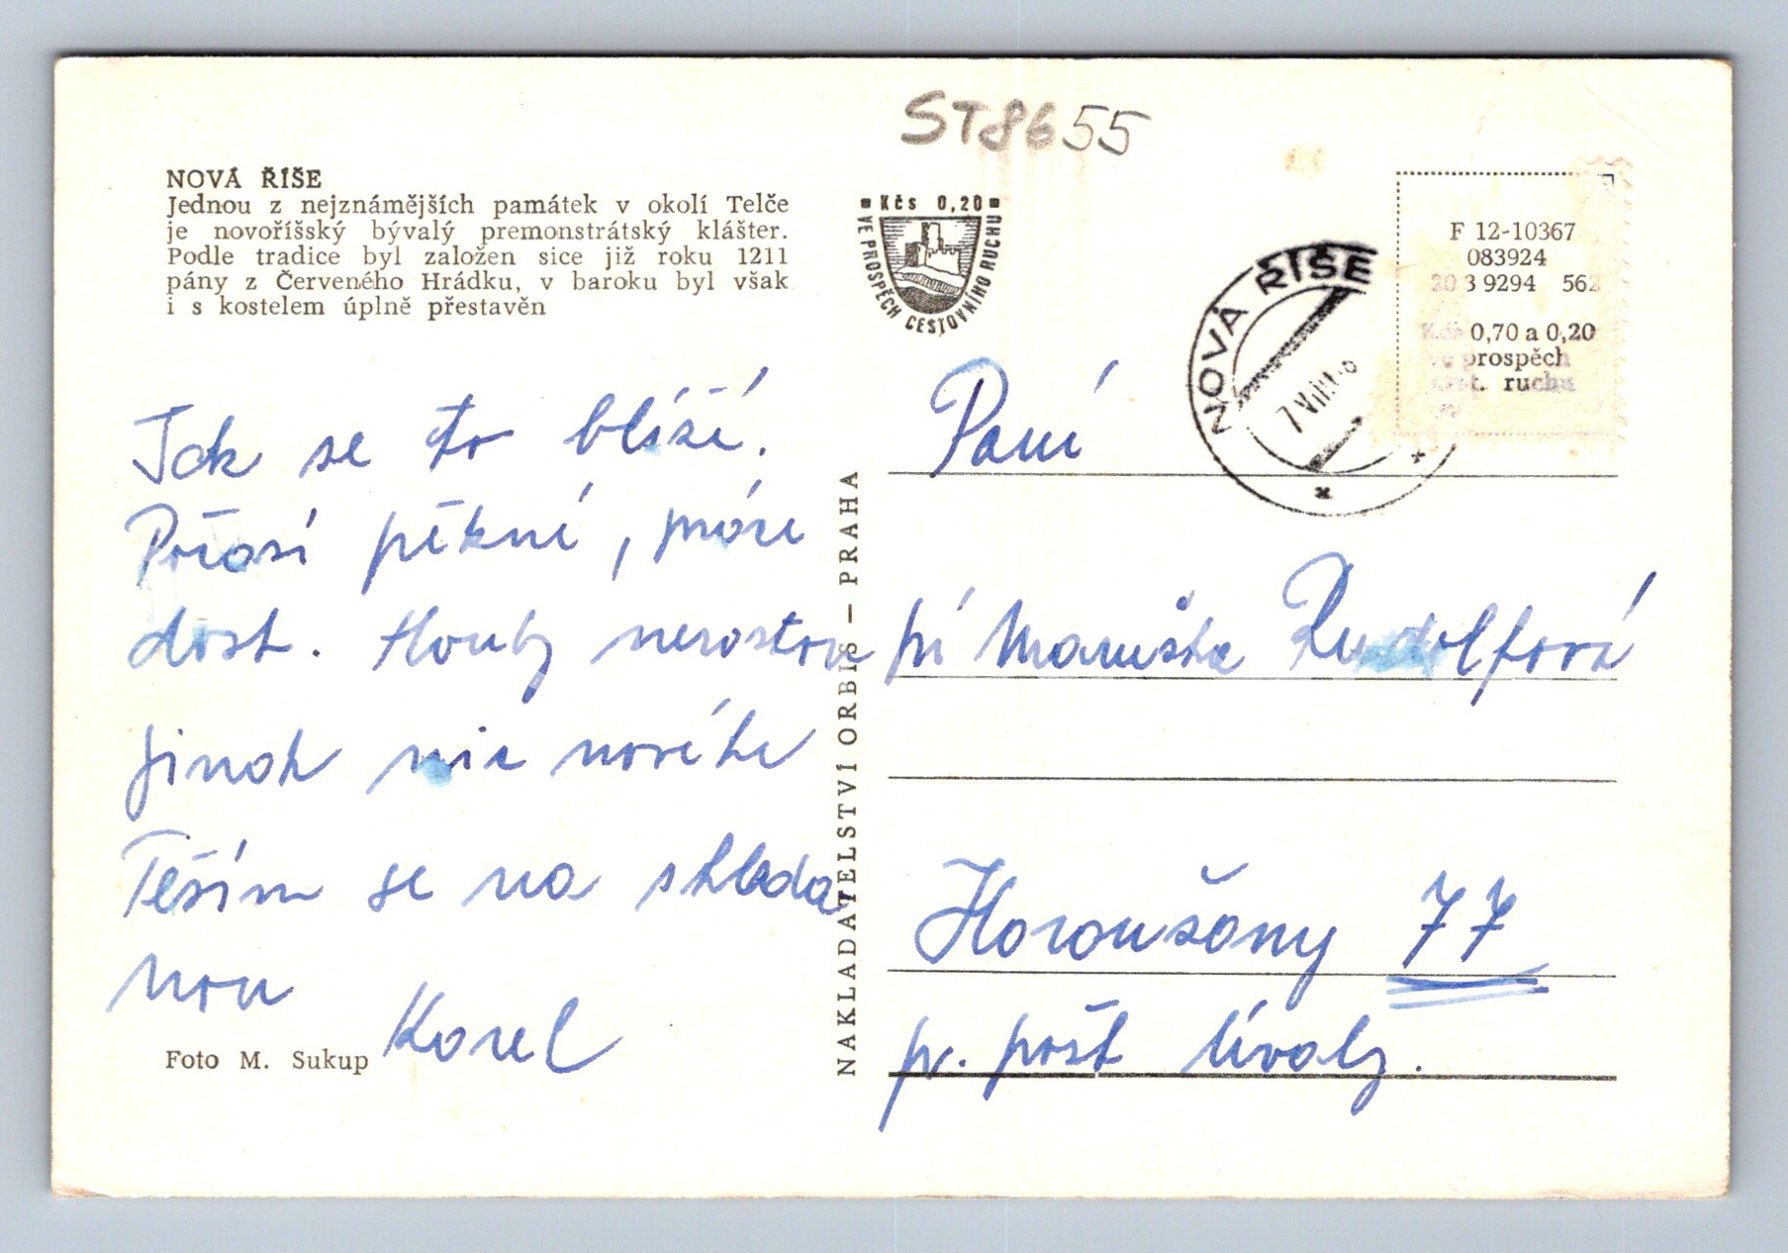 ST8655
NOVÁ ŘÍŠE
Jednou z nejznámějších památek v okolí Telče
je novoříšský bývalý premonstrátský klášter.
Podle tradice byl založen sice již roku 1211
pány z Červeného Hrádku, v baroku byl však
i s kostelem úplně přestavěn
Kčs 0,20
VE PROSPĚCH CESTOVNÍHO RUCHU
NOVÁ ŘÍŠE
7.VIII.
F 12-10367
083924
20 3 9294 562
Kčs 0,70 a 0,20
ve prospěch
cest. ruchu
Jak se to blíží.
Počasí pěkné, práce
dost. Houby nerostou
Jinak nic nového
Těším se na shleda
nou
Karel
Foto M. Sukup
NAKLADATELSTVÍ ORBIS – PRAHA
Paní
pí Maruška Rudolfová
Horoušany 77
p. pošt Úvaly.